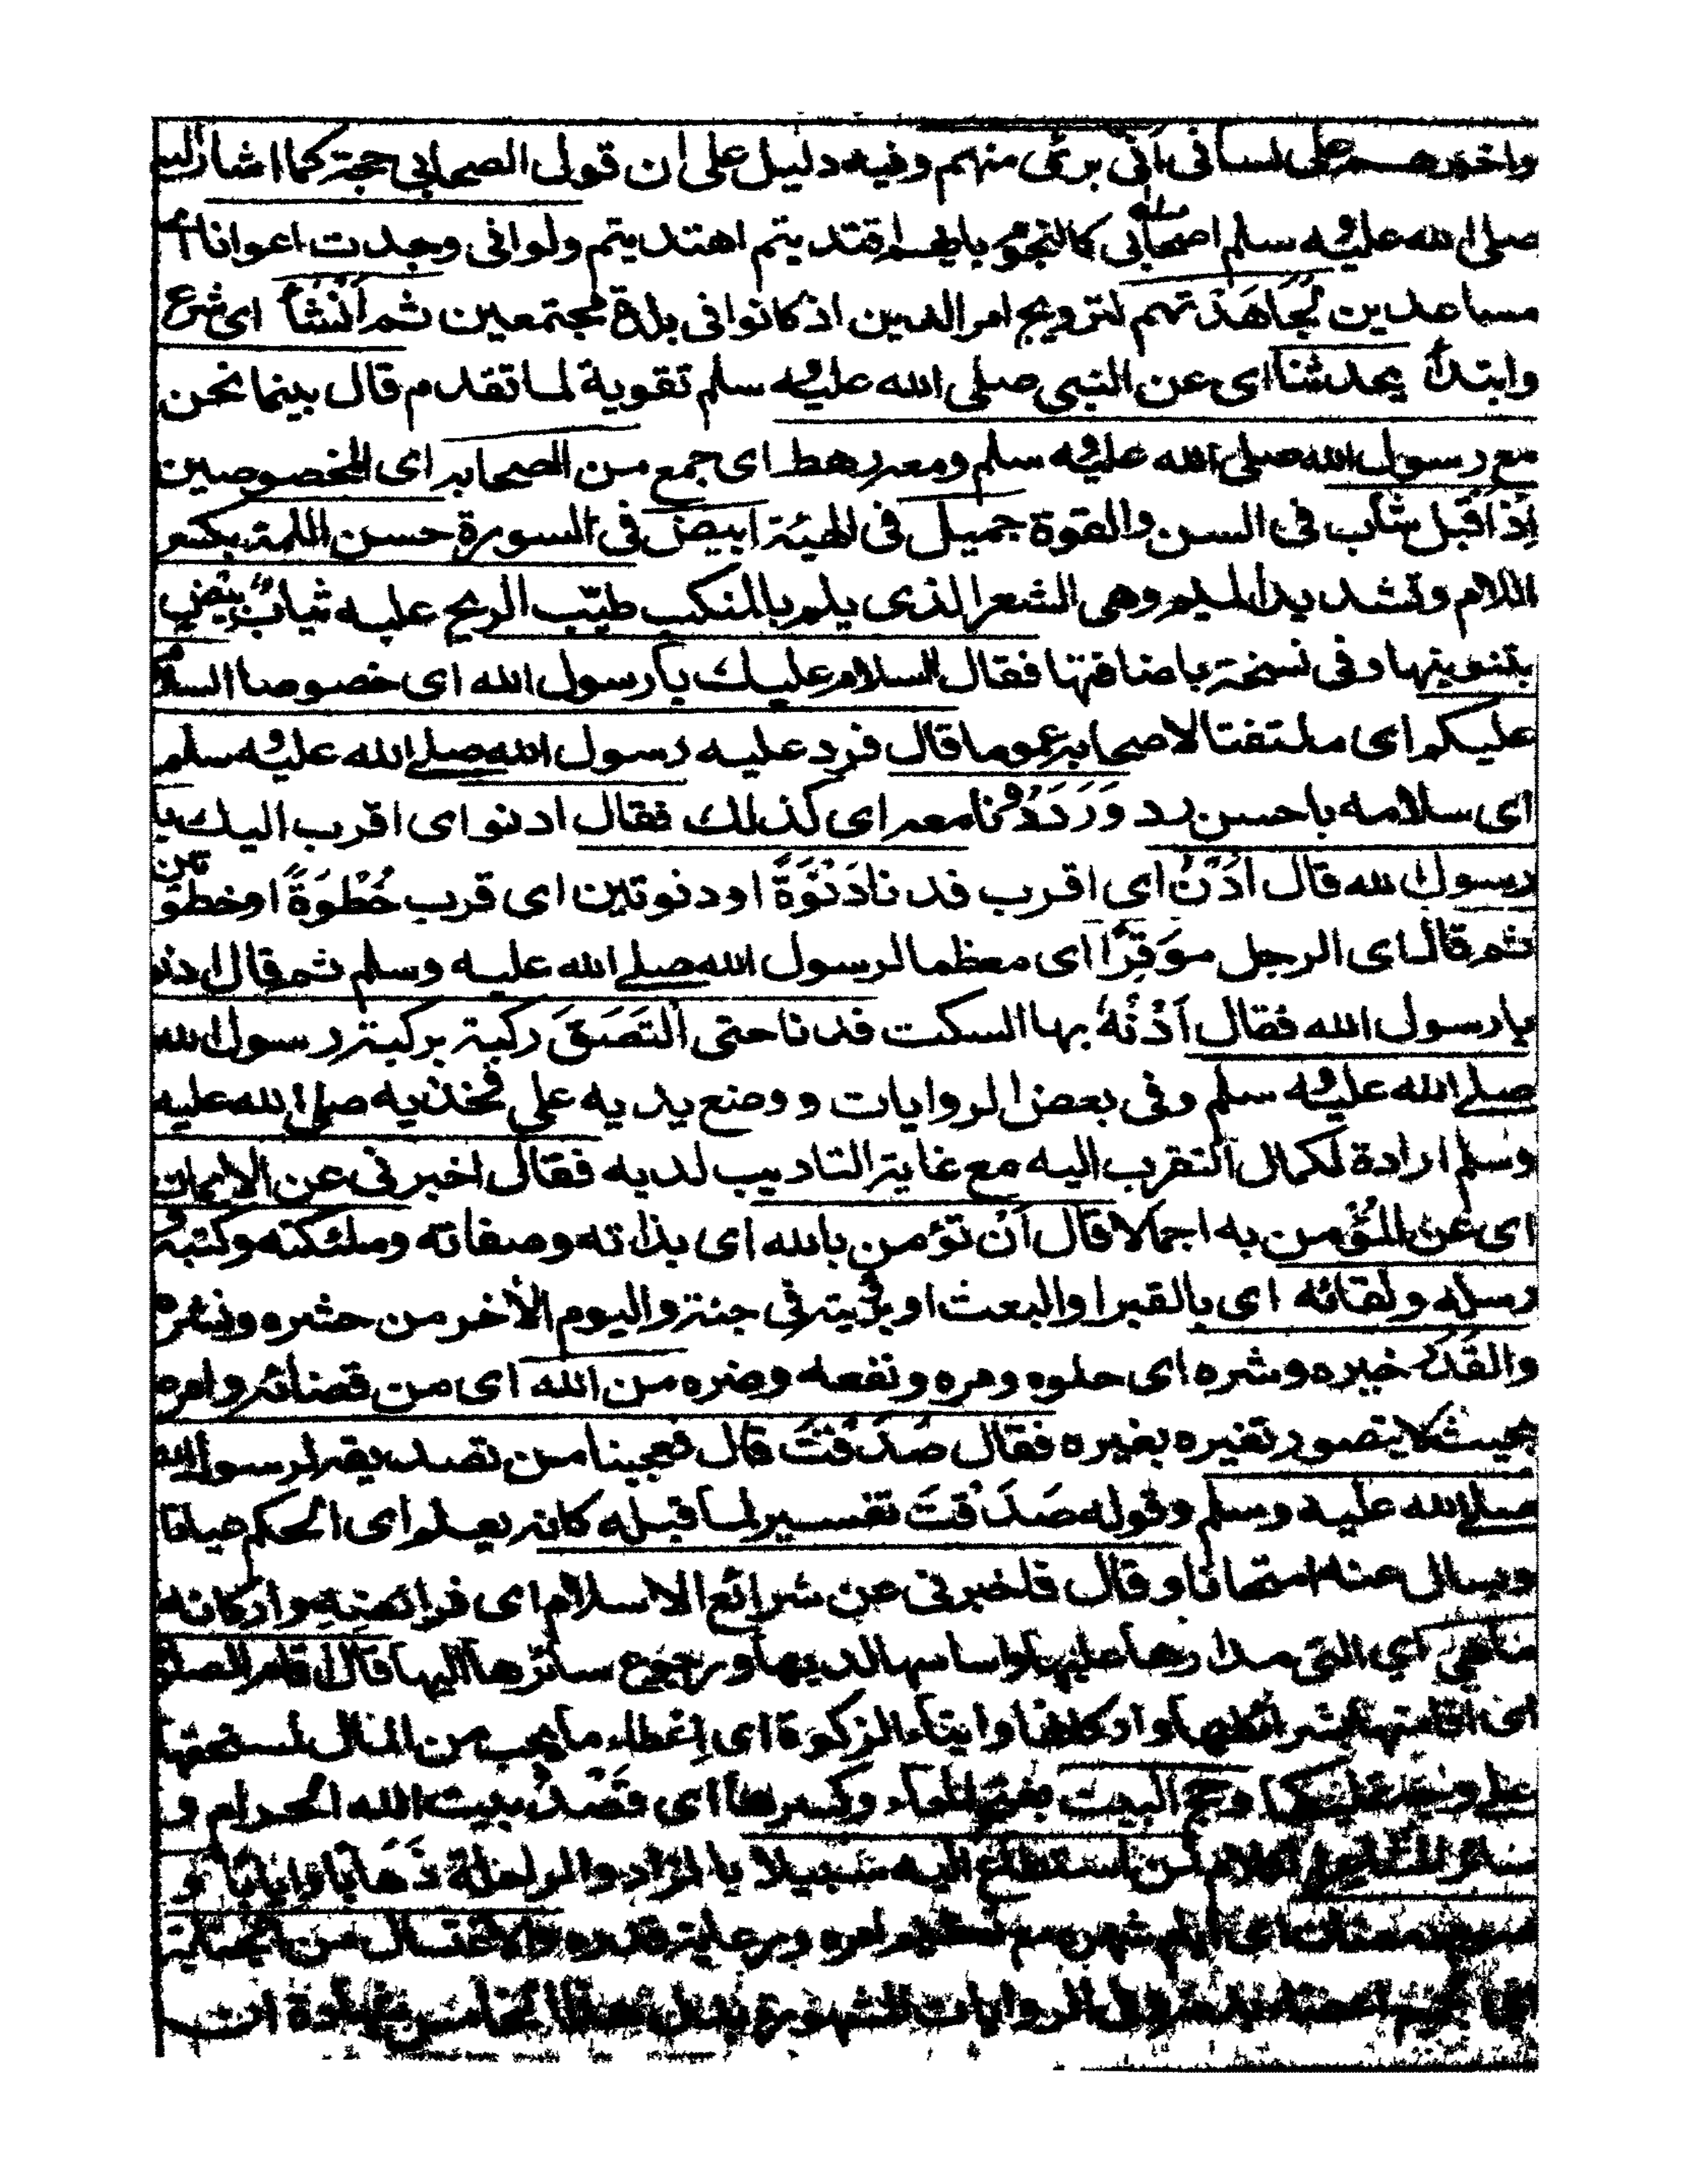 واخبرهم على لساني أني برئ منهم وفيه دليل على ان قول الصحابي حجة كما اشار اليه
صلى الله عليه وسلم اصحابي كالنجوم بايهم اقتديتم اهتديتم ولو اني وجدت اعوانا أي
مساعدين لجَاهَدْتهم لترويج امر الدين اذ كانوا في بلدة مجتمعين ثم أَنْشَأَ اي شرع
وابتدأ يحدثنا اي عن النبي صلى الله عليه وسلم تقوية لما تقدم قال بينما نحن
مع رسول الله صلى الله عليه وسلم ومعه رهط اي جمع من الصحابه اى المخصوصين
إذ أقبل شاب فى السن والقوة جميل فى الهيئة ابيض فى السورة حسن اللمة بكسر
اللام وتشديد الميم وهى الشعر الذى يلم بالمنكب طيّب الريح عليه ثيابٌ بيضٍ
بتنوينها وفى نسخة باضافتها فقال السلام عليك يا رسول الله اى خصوصا السلام
عليكم اى ملتفتا لاصحابه عموما قال فرد عليه رسول الله صلى الله عليه وسلم
اى سلامه باحسن رد وَرَدَدْنا معه اى كذلك فقال ادنو اى اقرب اليك يا
رسول الله قال ادْنُ اى اقرب فدنا دَنْوَةً او دنوتين اى قرب خُطْوَةً او خطوتين
ثم قال اى الرجل موَقِرًا اى معظما لرسول الله صلى الله عليه وسلم ثم قال ادنو
يا رسول الله فقال اُدْنُهْ بها السكت فدنا حتى التَصَقَ ركبة بركبة رسول الله
صلى الله عليه وسلم وفى بعض الروايات و وضع يديه على فخذيه صلى الله عليه
وسلم ارادة لكمال التقرب اليه مع غاية التاديب لديه فقال اخبرنى عن الايمان
اى عن المُؤْمن به اجمالا قال أَنْ تؤمن بالله اى بذاته وصفاته وملئكته وكتبه و
رسله ولقائه اى بالقبر والبعث او برؤيته فى جنته واليوم الأخر من حشره ونشره
والقَدَر خيره وشره اى حلوه ومره ونفعه وضره من الله اى من قضائه وامره
بحيث لا يتصور تغيره بغيره فقال صَدَقْتَ قال فعجبنا من تصديقه لرسول الله
صلى الله عليه وسلم وقوله صَدَقْتَ تفسير لما قبله كانه يعلم اى الحكم صادقا
ويسال عنه امتحانا وقال فاخبرنى عن شرائع الاسلام اى فرائضه واركانه
ما هى اى التى مدارها عليها واساسها لديها ورجوع سائرها اليها قال اقام الصلوة
اى اقامتها بشرائطها واركانها وايتاء الزكوة اى إعطاء ما يجب من المال لمستحقها
على وجه وحج البيت بفتح الحاء وكسرها اى قَصْدُ بيت الله الحرام و
سائر لمن استطاع اليه سبيلا بالزاد والراحلة ذَهابا وايابا و
صوم رمضان اى ايام شهره مع تعظيم امره ورعاية قدره والاغتسال من الجنابة
الروايات المشهورة بدل هذا الخامس شهادة ان